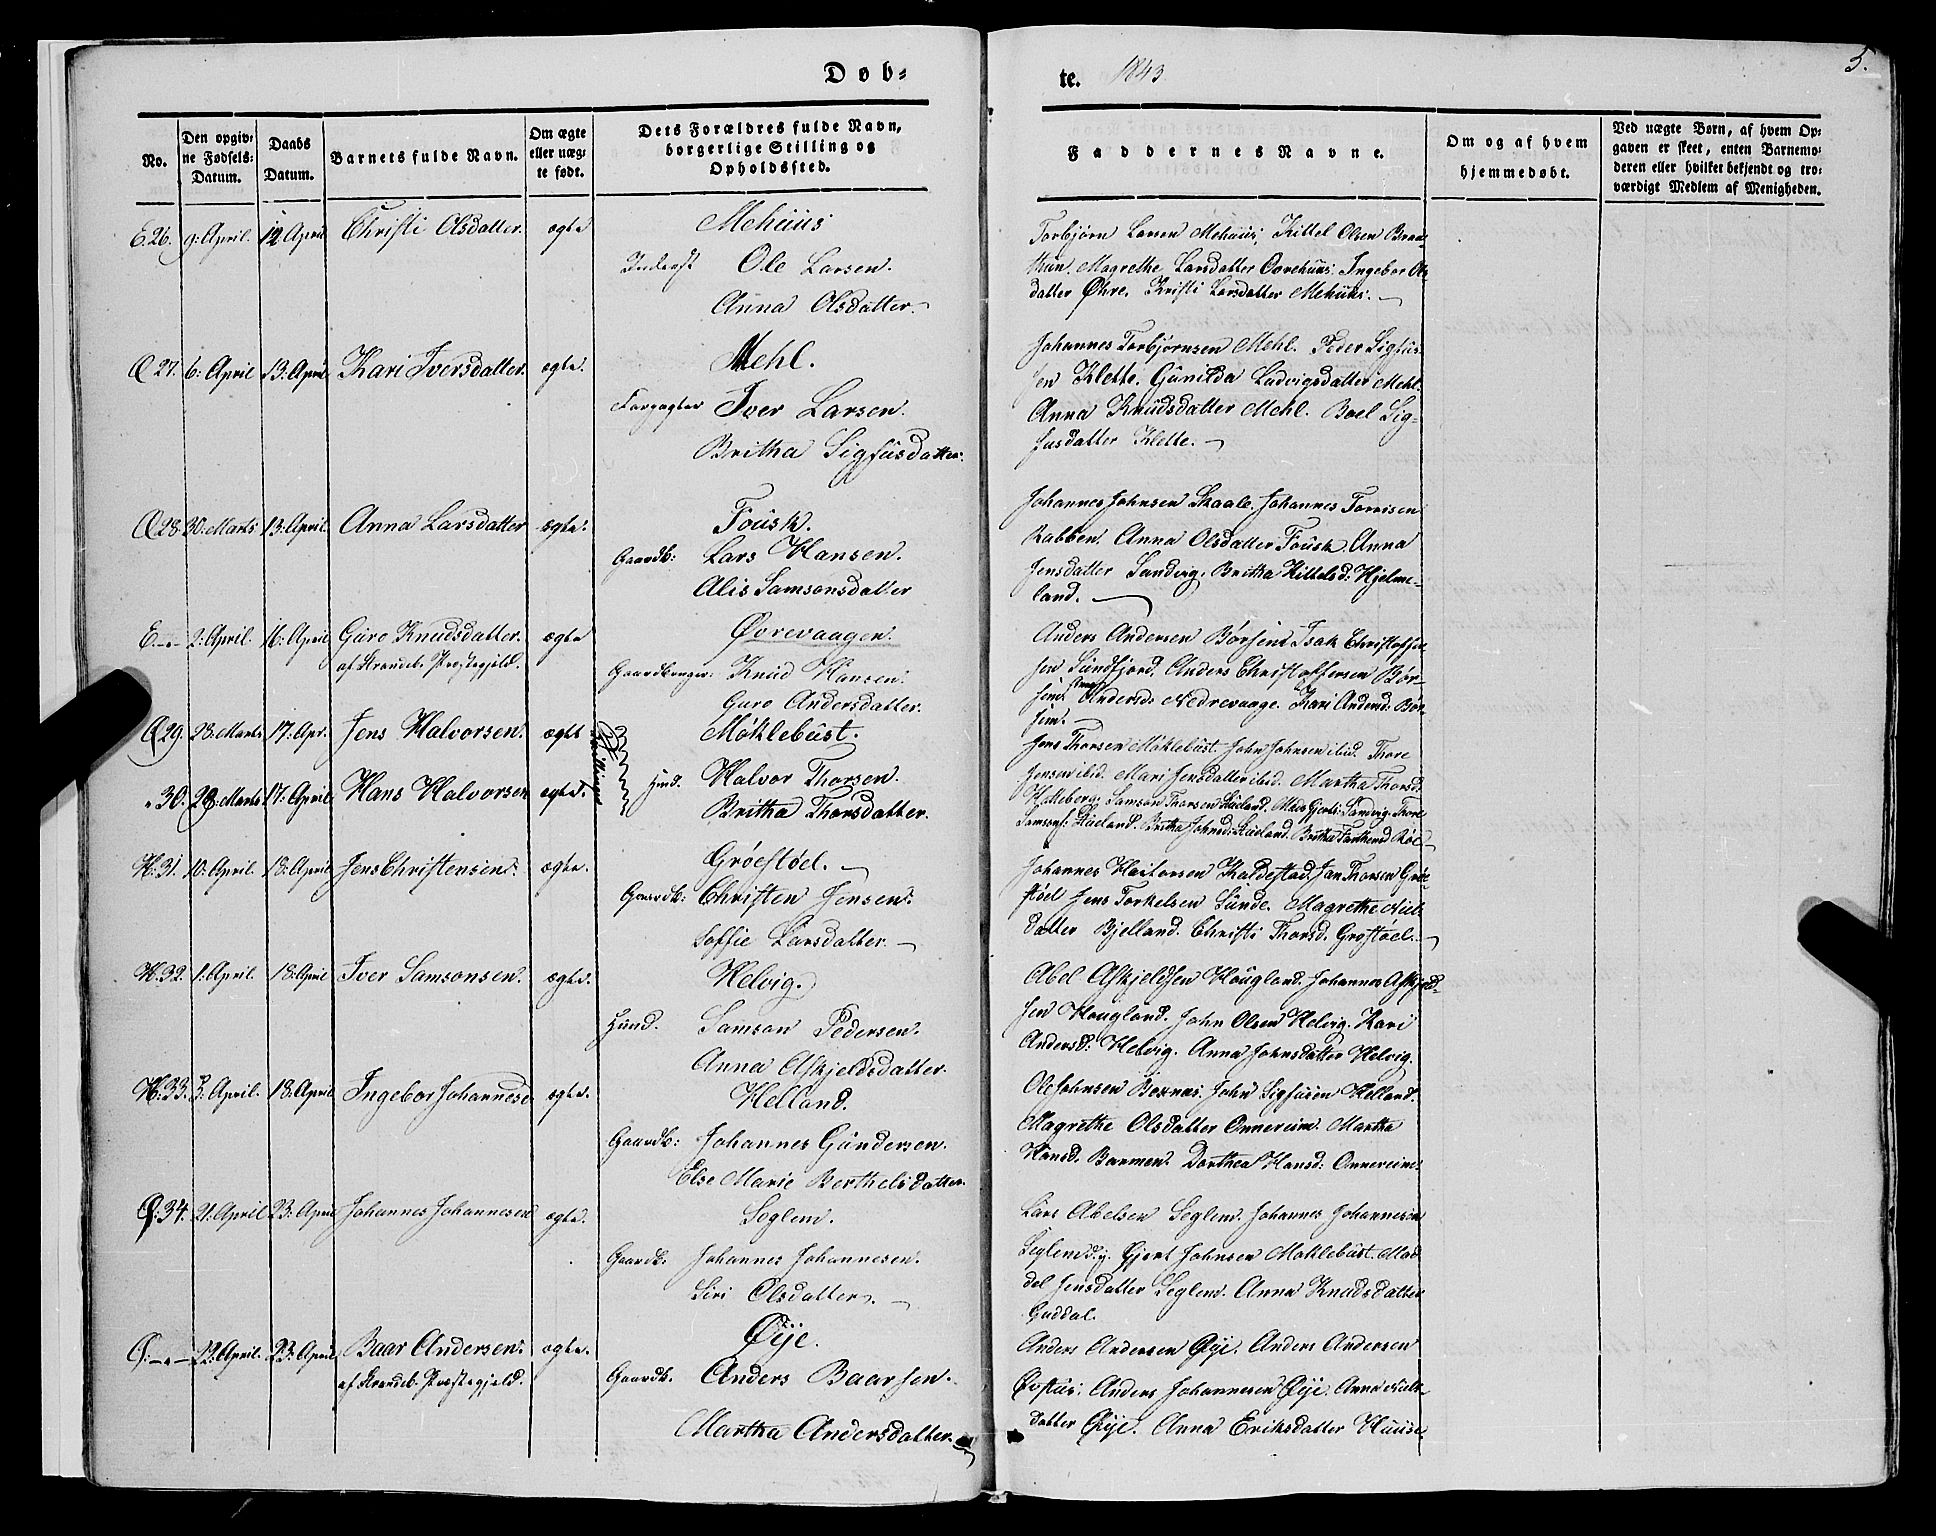 Døb-
te. 1843. 5.
No.
Den opgiv-
ne Fødsels-
Datum.
Daabs
Datum.
Barnets fulde Navn.
Om ægte
eller uæg-
te født.
Dets Forældres fulde Navn,
borgerlige Stilling og
Opholdssted.
Faddernes Navne.
Om og af hvem
hjemmedøbt.
Ved uægte Børn, af hvem Op-
gaven er skeet, enten Barnemo-
deren eller hvilket bekjendt og tro-
værdigt Medlem af Menigheden.
E. 26. 9: April. 12 April Christi Olsdatter. ægte
Mehuus
Inderst Ole Larsen.
Anna Olsdatter.
Torbjørn Larsen Mehuus, Kittel Olsen Braa-
thun. Magrethe Larsdatter Øvrehuus. Ingebor Ols
datter Øhre. Kristi Larsdatter Mehuus.
27. 6: April 13: April Kari Iversdatter. ægte.
Mehl.
Forpagter Iver Larsen.
Britha Sigfusdatter.
Johannes Torbjørnsen Mehl. Peder Sigfus-
sen Klette. Gunilda Ludvigsdatter Mehl.
Anna Knudsdatter Mehl. Boel Sig-
fusdatter Klette.
28. 30: Marts 13: April. Anna Larsdatter ægte.
Fousk.
Gaardb: Lars Hansen.
Alis Samsonsdatter
Johannes Johnsen Skaale. Johannes Torrisen
Rabben. Anna Olsdatter Fousk. Anna
Jensdatter Sandvig. Britha Kittelsd: Hjelme-
land.
E. -"- 2: April. 16: April Guro Knudsdatter. ægte
af Strandeb. Præstegjeld.
Øvrevaagen.
Gaardbruger: Knud Hansen.
Guro Andersdatter.
Anders Andersen Børsem Isak Christoffer
sen Sundfjord. Anders Christoffersen Bør-
sem. Andersd. Nedrevaage. Kari Andersd: Bør-
sem.
29. 28: Marts 17: Apr. Jens Halvorsen. ægte
" 30. 28: Marts 17: April Hans Halvorsen ægte.
Tvillinger
Møklebust.
Huusm. Halvor Thorsen.
Britha Thorsdatter.
Jens Thorsen Møklebust. John Johnsen ibid. Thore
Jensen ibid. Mari Jensdatter ibid. Martha Thorsd.
Samson Thorsen
H: 31. 10: April. 18: April Jens Christensen. ægte.
Grøestøel.
Gaardb: Christen Jensen.
Soffie Larsdatter.
Johannes Kaldestad. Jan Thorsen Grøe-
støel Jens Torkelsen Sunde. Magrethe Niels
datter Bjelland. Christi Thorsd. Grøstøel.
H: 32. 1: April. 18: April Iver Samsonsen. ægte.
Helvig.
Huusm. Samson Pedersen.
Anna Askjeldsdatter.
Abel Askjeldsen Hougland. Johannes Askjeld-
sen Hougland. John Olsen Helvig. Kari
Andersd: Helvig. Anna Johnsdatter Helvig.
H: 33. 3: April. 18: April Ingebor Johannesd. ægte.
Helland.
Gaardb: Johannes Gundersen.
Else Marie Berthelsdatter.
Ole Johnsen John Sigfusen Helland.
Magrethe Olsdatter Onnereim. Martha
Hansd. Barmen. Dorthea Hansd: Onnereim.
34. 21: April 23: April Johannes Johannesen ægte.
Seglem.
Gaardb. Johannes Johannesen.
Siri Olsdatter.
Lars Abelsen Seglem. Johannes Johannesen
Seglem d.y. Gjert Johnsen Møklebust. Mad
del Jensdatter Seglem. Anna Knudsdatter
Guddal.
Q: -"- 12: April. 23: April Baar Andersen. ægte.
af Strandeb. Præstegjeld.
Øije.
Gaardb. Anders Baarsen.
Martha Andersdatter.
Anders Andersen Øije. Anders Andersen
Østus: Anders Johannesen Øije. Anna Niels-
datter Øije. Anna Eriksdatter Huuse.